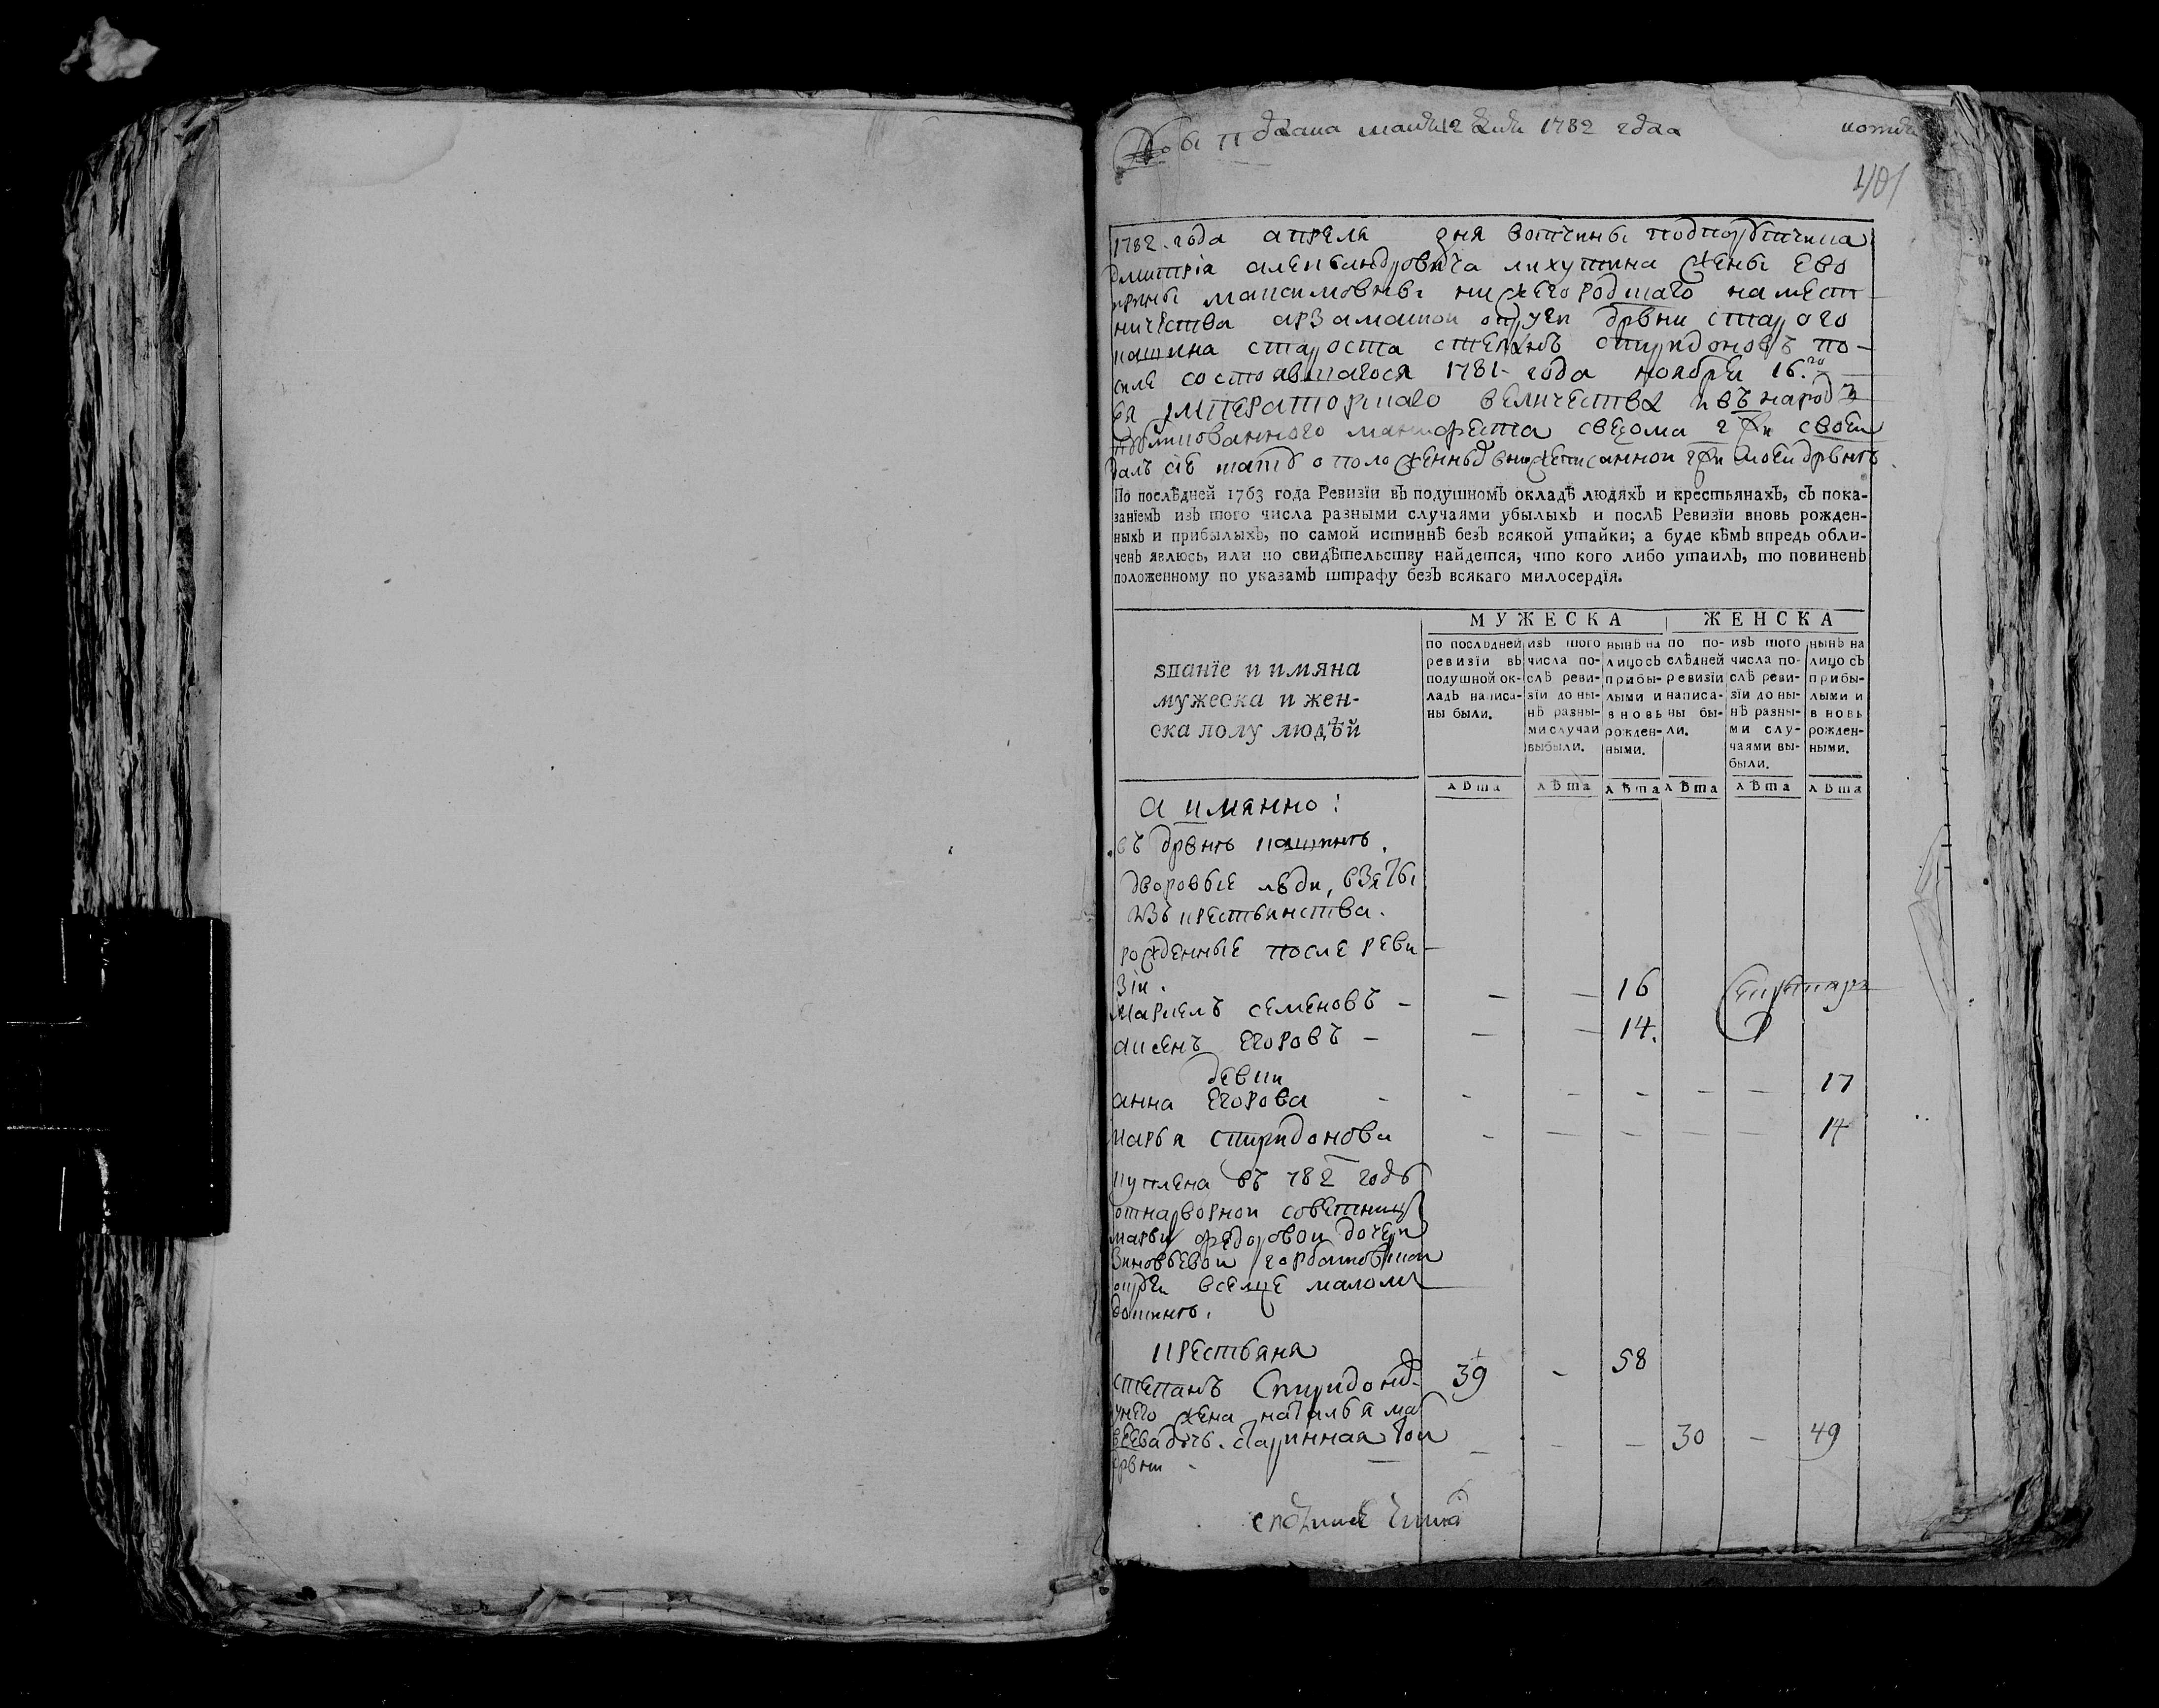 дня 1782 года
401
1782. года апреля дня вотчины подпорутчика
дмитрiя александровича лихутина жены ево
ирины максимовны нижегородскаго намест
ничества арзамаской округи дрвни старого
кащина староста степанъ спиридоновъ по
силе состоявшагося 1781 года ноября 16.го
ея императорскаго величества и въ народ
публикованного манифеста сведома гжи своей
далъ сiе о положенныхъ вышеписанной гжи моей дрвнъ
По послѣдней 1763 года Ревизïи въ подушномъ окладѣ людяхъ и крестьянахъ, съ пока-
занïемъ изъ того числа разными случаями убылыхъ и послѣ Ревизïи вновь рожден-
ныхъ и прибылыхъ, по самой истиннѣ безъ всякой утайки; а буде кѣмъ впредь обли-
ченъ явлюсь, или по свидѣтельству найдется, что кого либо утаилъ, то повиненъ
положенному по указамъ штрафу безъ всякаго милосердïя.
МУЖЕСКА ЖЕНСКА
званïе и имяна
мужеска и жен-
ска полу людѣй
по послѣдней
ревизïи въ
подушной ок-
ладъ написа-
ны были.
изъ того
числа по-
слѣ реви-
зïи до ны-
нѣ разны-
ми случаи
выбыли.
нынѣ на
лицо съ
прибы-
лыми и
вновь
рожден-
ными.
по по-
слѣдней
ревизïи
написа-
ны бы-
ли.
изъ того
числа по-
слѣ реви-
зïи до ны-
нѣ разны-
ми слу-
чаями вы-
были.
нынѣ на
лицо съ
прибы-
лыми и
в новь
рожден-
ными.
лѣта лѣта лѣта лѣта лѣта лѣта
а имянно:
въ дрвнѣ кащинѣ.
дворовые люди, взяты
изъ крестьянства.
рожденные после реви
зiи.
карпелъ семеновъ - — — 16
аксенъ егоровъ - — — 14.
девки
анна егорова - - - - - — 17
марья спиридонова - — — — — 14
куплена въ 782 годъ
отнадворной советницы
марьи федоровой дочери
зиновьевой горбатовской
округи вселце малом
крестьяня
степанъ спиридоновъ 39 - 58
унего жена наталья ма
веева дочь. старинная той — - — 30 — 49
дрвни -